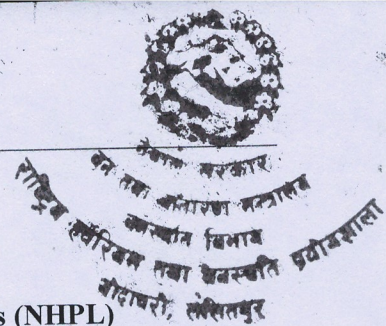 नेपाल सरकार
वन तथा वातावरण मन्त्रालय
वनस्पति विभाग
राष्ट्रिय हर्वेरियम तथा वनस्पति प्रयोगशाला
गोदावरी, ललितपुर
s (NHPL)